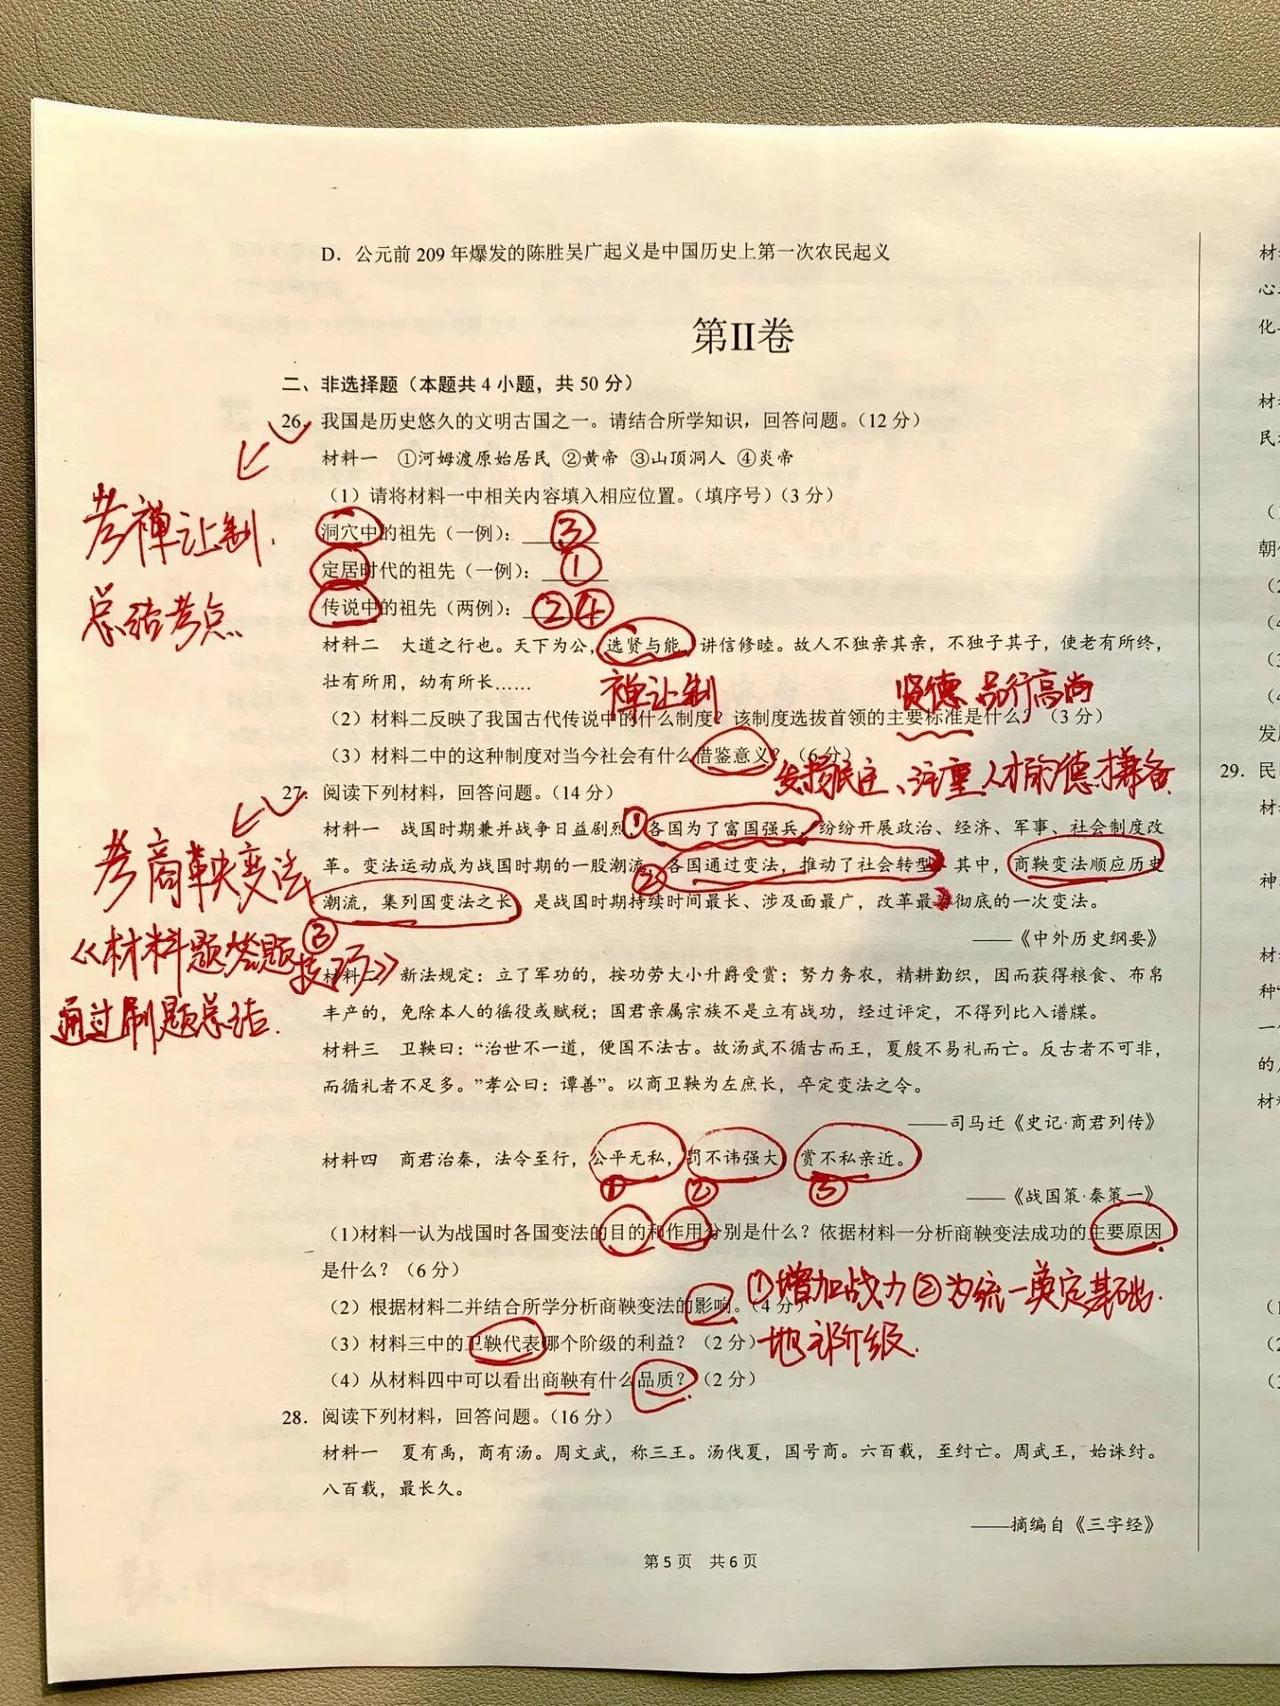 D．公元前 209 年爆发的陈胜吴广起义是中国历史上第一次农民起义
第II卷
二、非选择题（本题共 4 小题，共 50 分）
26．我国是历史悠久的文明古国之一。请结合所学知识，回答问题。（12 分）
材料一 ①河姆渡原始居民 ②黄帝 ③山顶洞人 ④炎帝
（1）请将材料一中相关内容填入相应位置。（填序号）（3 分）
考禅让制.
洞穴中的祖先（一例）：③
定居时代的祖先（一例）：①
总结考点
传说中的祖先（两例）：②④
材料二 大道之行也。天下为公，选贤与能，讲信修睦。故人不独亲其亲，不独子其子，使老有所终，
壮有所用，幼有所长……
禅让制 贤德 品行高尚
（2）材料二反映了我国古代传说中的什么制度？该制度选拔首领的主要标准是什么？（3 分）
（3）材料二中的这种制度对当今社会有什么借鉴意义？（6 分）
发扬民主、注重人才的德才兼备
27．阅读下列材料，回答问题。（14 分）
材料一 战国时期兼并战争日益剧烈，①各国为了富国强兵，纷纷开展政治、经济、军事、社会制度改
考商鞅变法
革。变法运动成为战国时期的一股潮流，②各国通过变法，推动了社会转型，其中，商鞅变法顺应历史
潮流，集列国变法之长，是战国时期持续时间最长、涉及面最广，改革最为彻底的一次变法。
③
——《中外历史纲要》
《材料题答题技巧》
材料二 新法规定：立了军功的，按功劳大小升爵受赏；努力务农，精耕勤织，因而获得粮食、布帛
通过刷题总结.
丰产的，免除本人的徭役或赋税；国君亲属宗族不是立有战功，经过评定，不得列比入谱牒。
材料三 卫鞅曰：“治世不一道，便国不法古。故汤武不循古而王，夏殷不易礼而亡。反古者不可非，
而循礼者不足多。”孝公曰：谭善”。以商卫鞅为左庶长，卒定变法之令。
——司马迁《史记·商君列传》
材料四 商君治秦，法令至行，公平无私，罚不讳强大，赏不私亲近。
① ② ③
——《战国策·秦策一》
(1)材料一认为战国时各国变法的目的和作用分别是什么？依据材料一分析商鞅变法成功的主要原因
是什么？（6 分）
①增加战力②为统一奠定基础.
（2）根据材料二并结合所学分析商鞅变法的影响。（4 分）
（3）材料三中的卫鞅代表哪个阶级的利益？（2 分）地主阶级.
（4）从材料四中可以看出商鞅有什么品质？（2 分）
28．阅读下列材料，回答问题。（16 分）
材料一 夏有禹，商有汤。周文武，称三王。汤伐夏，国号商。六百载，至纣亡。周武王，始诛纣。
八百载，最长久。
——摘编自《三字经》
第 5 页 共 6 页
材
心
化
材
民
（
朝
（2
（4
（3
（4
发
29．民
材
神
材
种“
一
的
材
（1
（2
（3